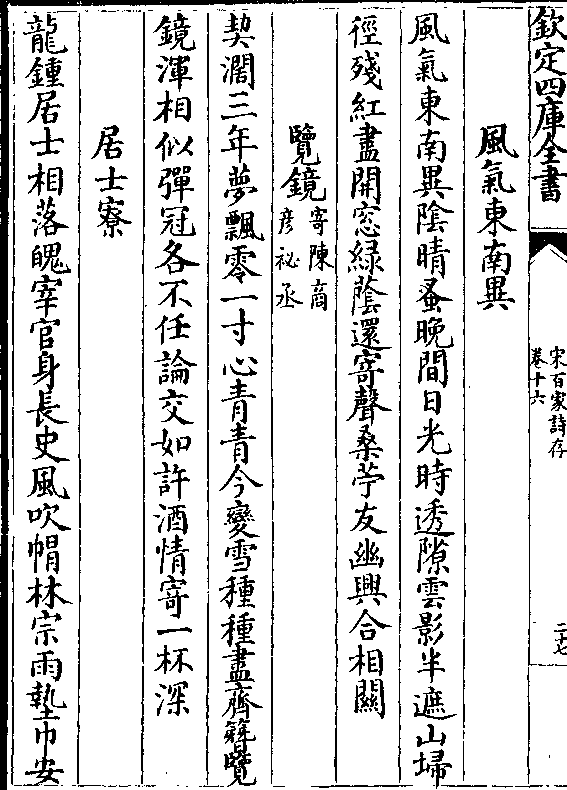 欽定四庫全書
宋百家詩存
卷十六
二十七
風氣東南異
風氣東南異陰晴蚤晚間日光時透隙雲影半遮山埽
徑殘紅盡開窓緑蔭還寄聲桑苧友幽興合相關
覽鏡寄陳商
彥祕丞
契濶三年夢飄零一寸心青青今變雪種種盡齊簪覽
鏡渾相似彈冠各不任論交如許酒情寄一杯深
居士寮
龍鍾居士相落魄宰官身長史風吹帽林宗雨墊巾安